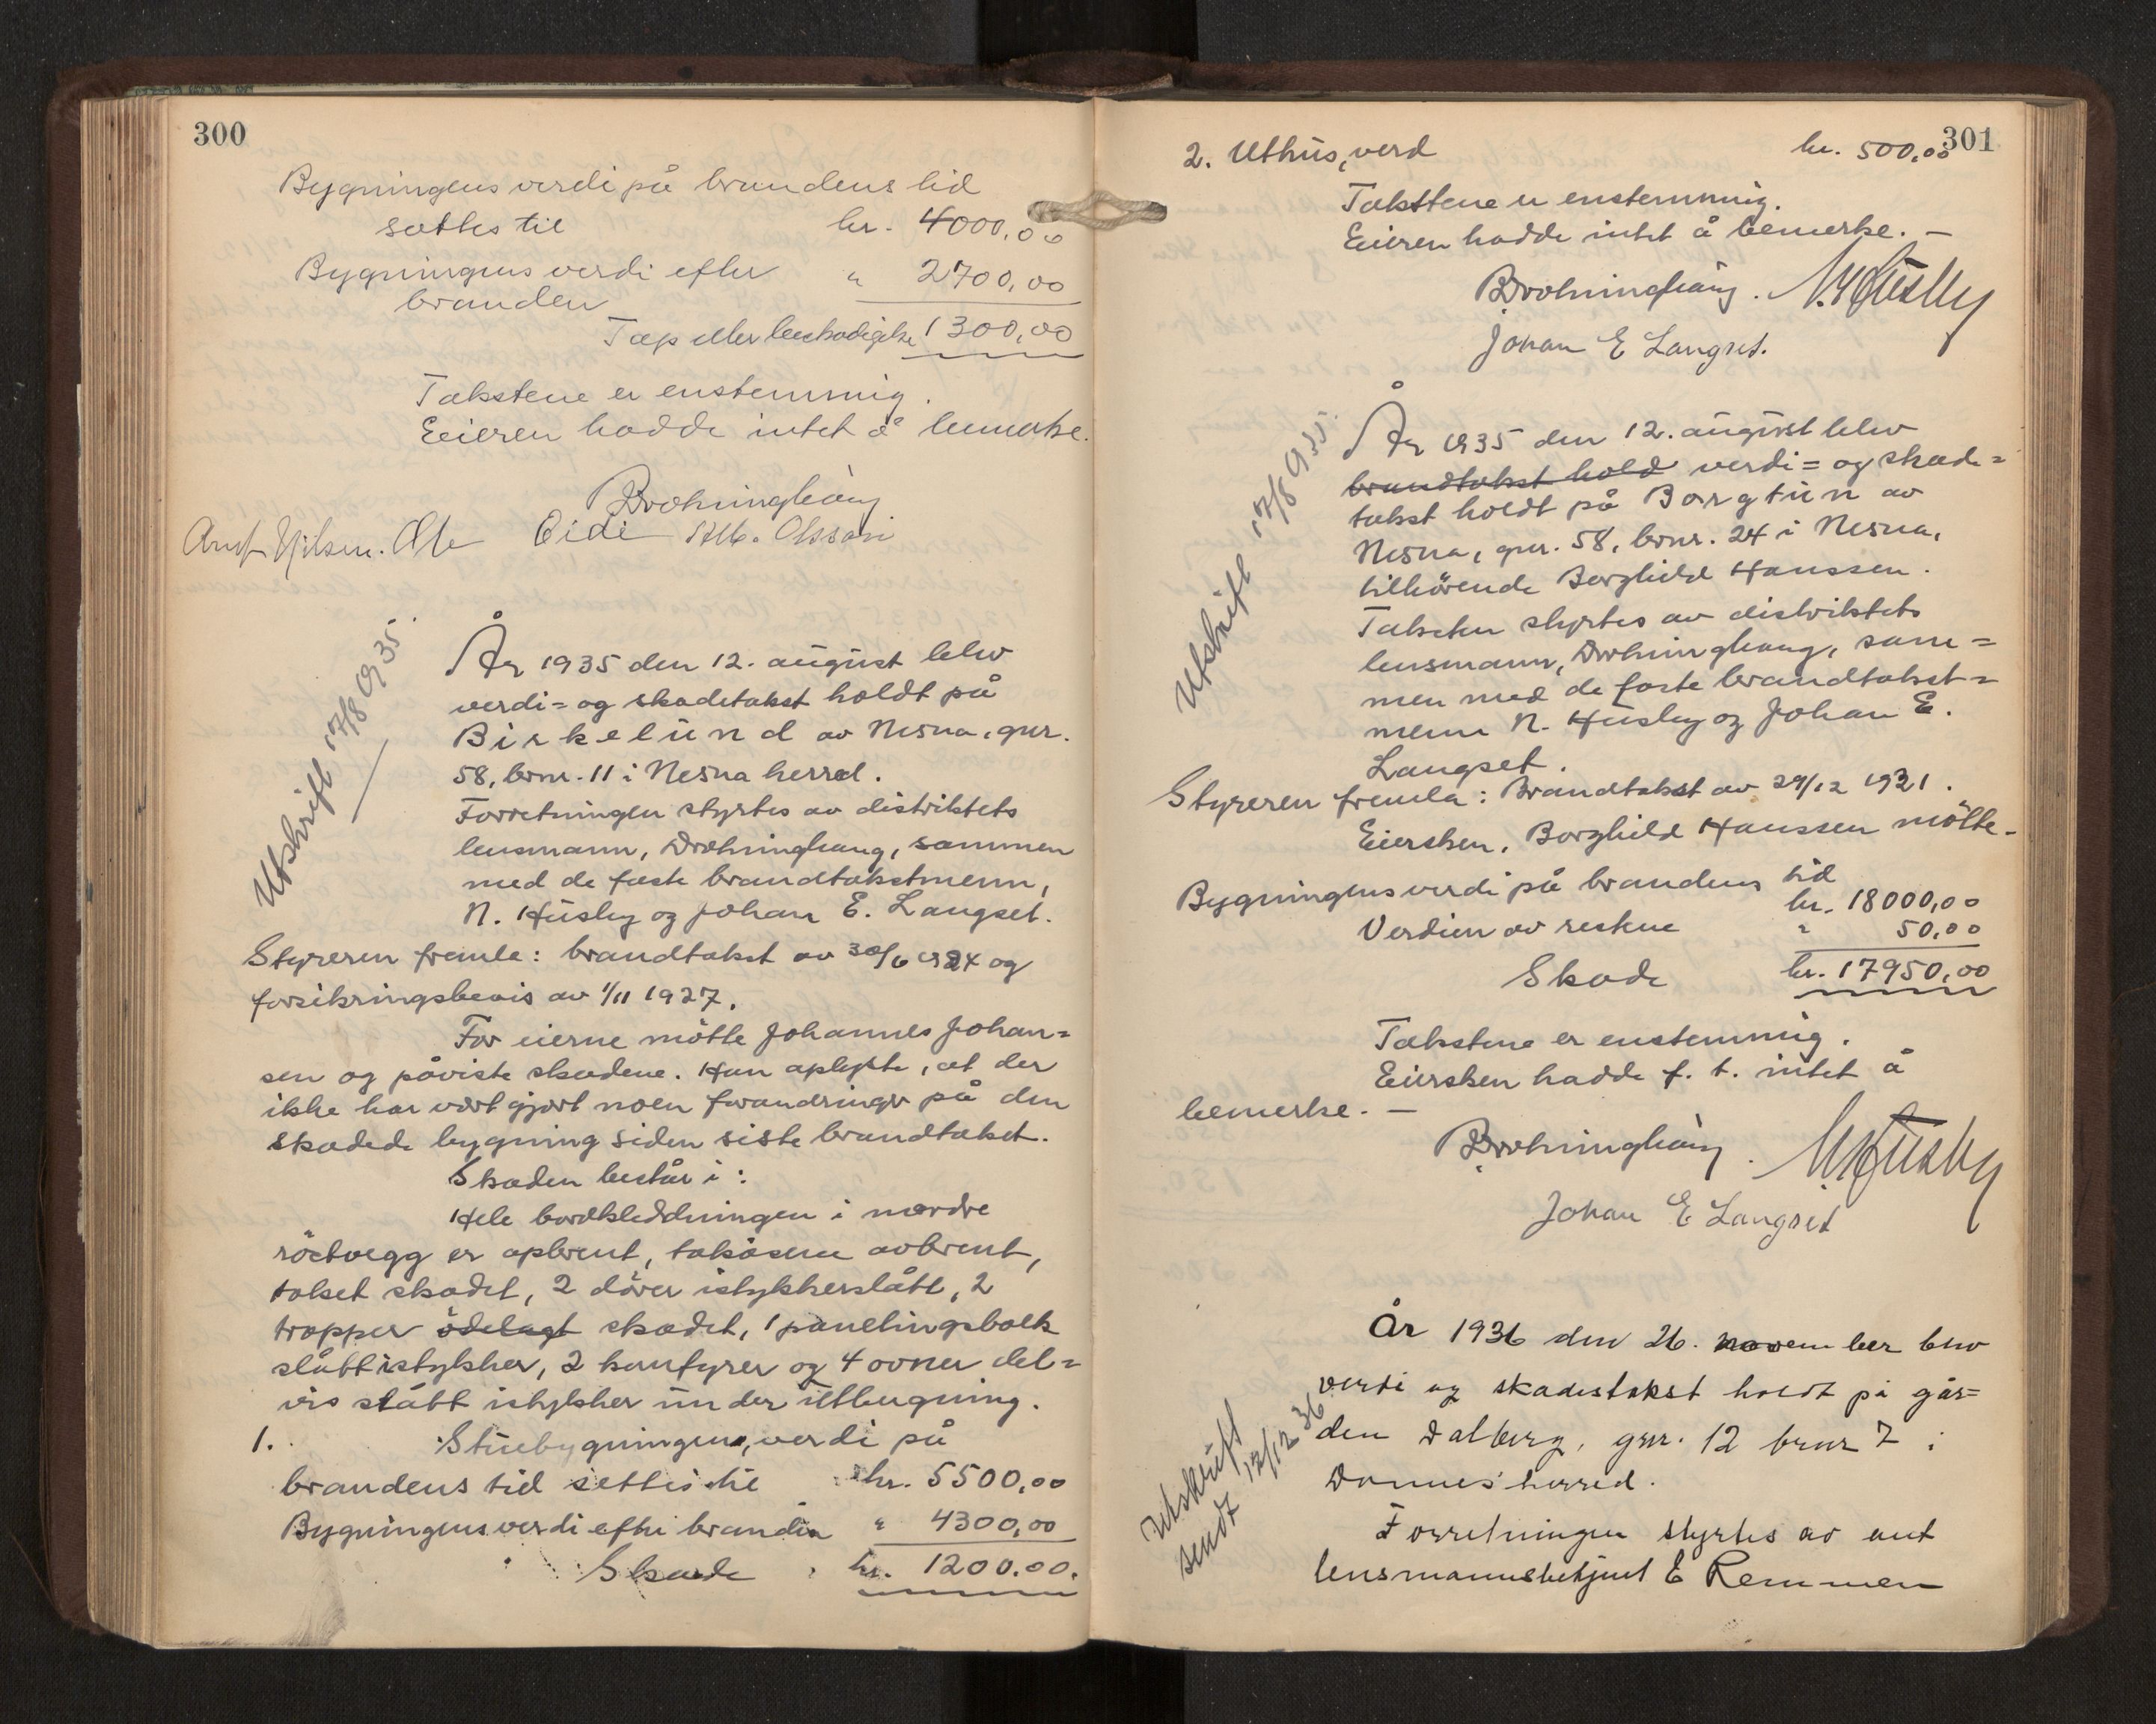 300
Bygningens verdi på brandens tid
sættes til kr. 4000,00
Bygningens verdi efter " 2700,00
branden
Tap eller beskadigelse 1300,00
Takstene er enstemmig.
Eieren hadde intet å bemerke.
Dronninghaug
Arnt Nilsen. Ole Eide Alb. Olssøn
Utskrift 17/8 1935.
År 1935 den 12. august blev
verdi= og skadetakst holdt på
Birkelund av Nesna, gnr.
58, brnr. 11 i Nesna herred.
Forretningen styrtes av distriktets
lensmann, Dronninghaug, sammen
med de faste brandtakstmenn,
N. Husby og Johan E. Langset.
Styreren fremla: brandtakst av 30/6 1924 og
forsikringsbevis av 1/11 1927.
For eierne mötte Johannes Johan=
sen og påviste skadene. Han oplyste, at der
ikke har vært gjort noen forandringer på den
skadede bygning siden siste brandtakst.
Skaden består i:
Hele bordkledningen i nordre
röstvegg er opbrent, takåsene avbrent,
taket skadet, 2 dörer istykkerslått, 2
trapper ödelagt skadet, 1 panelingsbolk
slått istykker, 2 komfyrer og 4 ovner del=
vis slått istykker under utbugning.
1. Stuebygningens, verdi på
brandens tid settes til kr. 5500,00
Bygningens verdi efter branden " 4300,00
Skade kr. 1200.00.
301
2. Uthus, verd kr. 500,00
Taksttene er enstemmig.
Eieren hadde intet å bemerke. —
Dronninghaug. N. Husby
Johan E Langset.
Utskrift 17/8 1935.
År 1935 den 12. august blev
brandtakst hold verdi= og skade=
takst holdt på Borgtun av
Nesna, gnr. 58, brnr. 24 i Nesna,
tilhörende Borghild Hanssen.
Taksten styrtes av distriktets
lensmann, Dronninghaug, sam=
men med de faste brandtakst=
menn N. Husby og Johan E.
Langset.
Styreren fremla: Brandtakst av 29/12 1921.
Eiersken, Borghild Hanssen mötte.
Bygningens verdi på brandens tid
kr. 18000,00
Verdien av restene " 50,00
Skade kr. 17950,00
Takstene er enstemmig.
Eiersken hadde f. t. intet å
bemerke. —
Dronninghaug. N. Husby
Johan E Langset
Utskrift
sendt 12/12 36
År 1936 den 26. november blev
verdi og skadestakst holdt på går=
den Dalberg, gnr. 12 brnr 7 i
Dønnes herred.
Forretningen styrtes av aut
lensmannsbetjent E Remmen